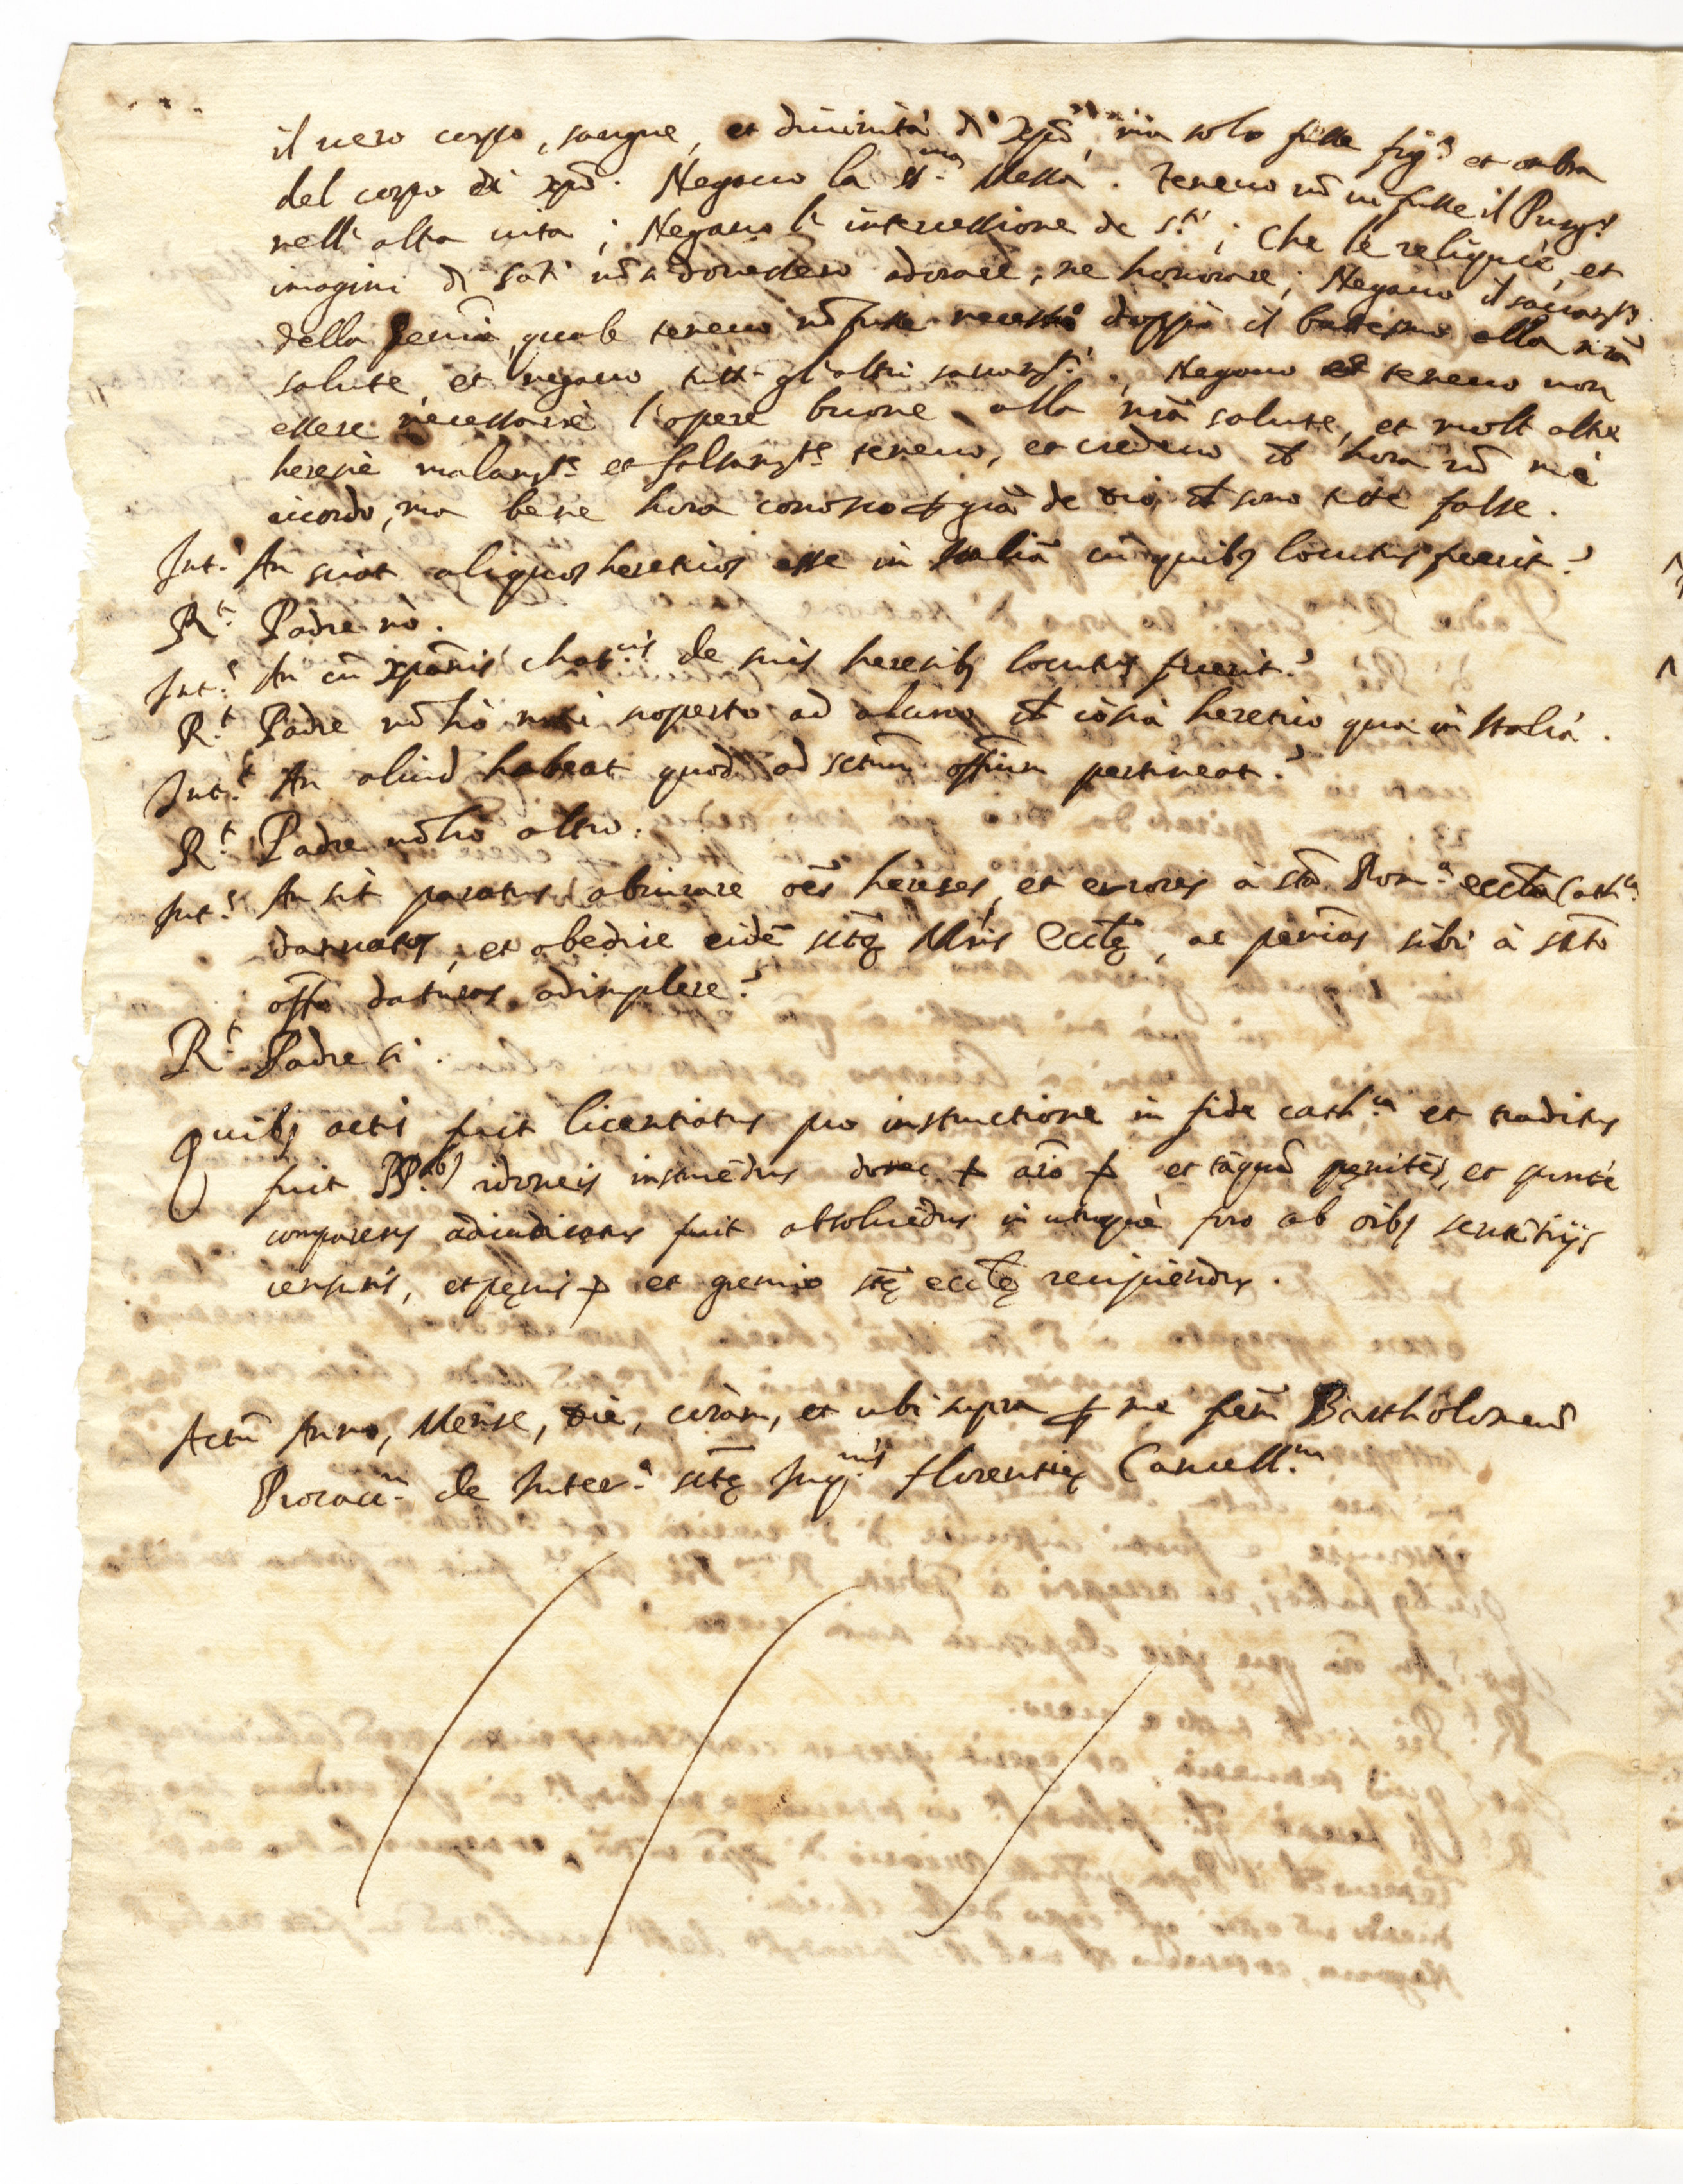 il uero corpo, sangue, et diuinità di Xpõ, mà solo fusse fig.ª et ombra
del corpo di xpõ. Negauo la ss.ma Messa. Teneuo nõ ui fusse il Purg.º
nell'altra uita; Negauo l'intercessione de s.ti; Che le reliquie, et
imagini di Sãti nõ si douessero adorare, ne honorare; Negauo il sacram.to
della penīa, quale teneuo nõ fusse necess.º doppo il battesimo alla nrã
salute, et negauo tutti gl'altri sacram.ti; Negauo et teneuo non
essere necessarie l'opere buone alla nrã salute, et molt'altre
heresie malam.te et falsam.te teneuo, et credeuo, ch hora nõ mi
ricordo, ma bene hora conosco p grã de Dio, ch sono tutte false.
Int.s An sciat aliquos hereticos esse in Italiã cũ quibs locutus fuerit?
R.t Padre nò.
Int.s An cũ xpãnis chat.cis de suis heresibs locutus fuerit?
R.t Padre nõ hò mai scoperto ad alcuno ch io sia heretico qua in Italia.
Int.s An aliud habeat quod ad sctum offium pertineat?
R.t Padre nõ hò altro.
Int.s An sit paratus abiurare oẽs hereses, et errores à sta Rom.ª eccla Cath.ca
damnatos, et obedire eidẽ sctę Mris Ecclę, ac penĩas sibi à scto
offo daturas adimplere?
R.t Padre si.
Quibs actis fuit licentiatus pro instructione in fide cath.ca et traditus
fuit PP.bs idoneis instruẽdus donec et tãquã pęnitẽs, et spontè
comparens adiudicatus fuit absoluẽdus in utroque foro ab oĩbs sentẽtijs
censuris, et pęnis et gremio stę ecclę recipiendus.
Actũ Anno, Mense, Die, coram, et ubi supra p me frem Bartholomeũ
Procacc.m de Inter.ª sctę Inq.nis Florentię Cancell.m